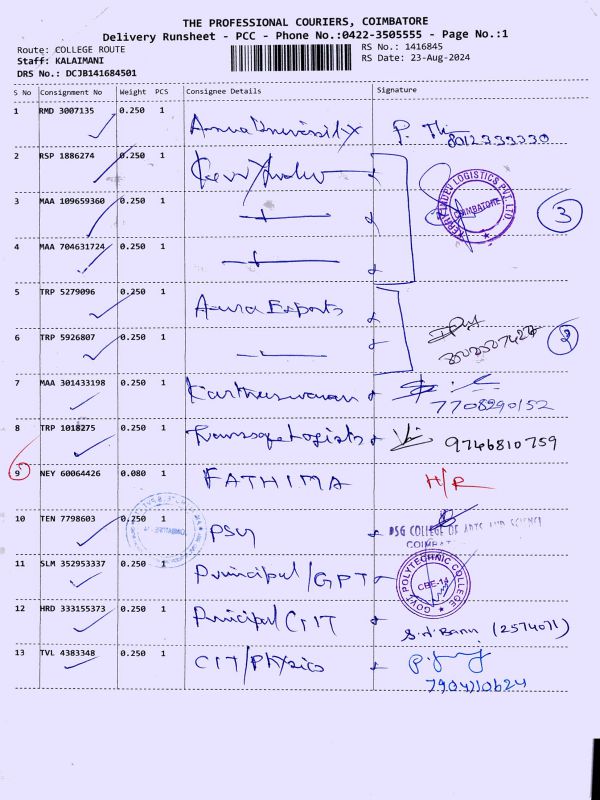 THE PROFESSIONAL COURIERS, COIMBATORE
Delivery Runsheet - PCC - Phone No.:0422-3505555 - Page No.:1
Route: COLLEGE ROUTE RS No.: 1416845
Staff: KALAIMANI RS Date: 23-Aug-2024
DRS No.: DCJB141684501
S No Consignment No Weight PCS Consignee Details Signature
1 RMD 3007135 0.250 1 Anna University
2 RSP 1886274 0.250 1
3 MAA 109659360 0.250 1
COIMBATORE
3
4 MAA 704631724 0.250 1
5 TRP 5279096 0.250 1 Exports
6 TRP 5926807 0.250 1
2
7 MAA 301433198 0.250 1 Kartheeswaran
7708290152
8 TRP 1018275 0.250 1 9746810759
9 NEY 60064426 0.080 1 FATHIMA H/R
10 TEN 7798603 0.250 1 PSG
PSG COLLEGE OF ARTS AND SCIENCE
11 SLM 352953337 0.250 1 Principal/GPT
GOVT POLYTECHNIC COLLEGE
CBE-14
12 HRD 333155373 0.250 1 Principal CIT (2574071)
13 TVL 4383348 0.250 1 CIT/Physics
7904210624